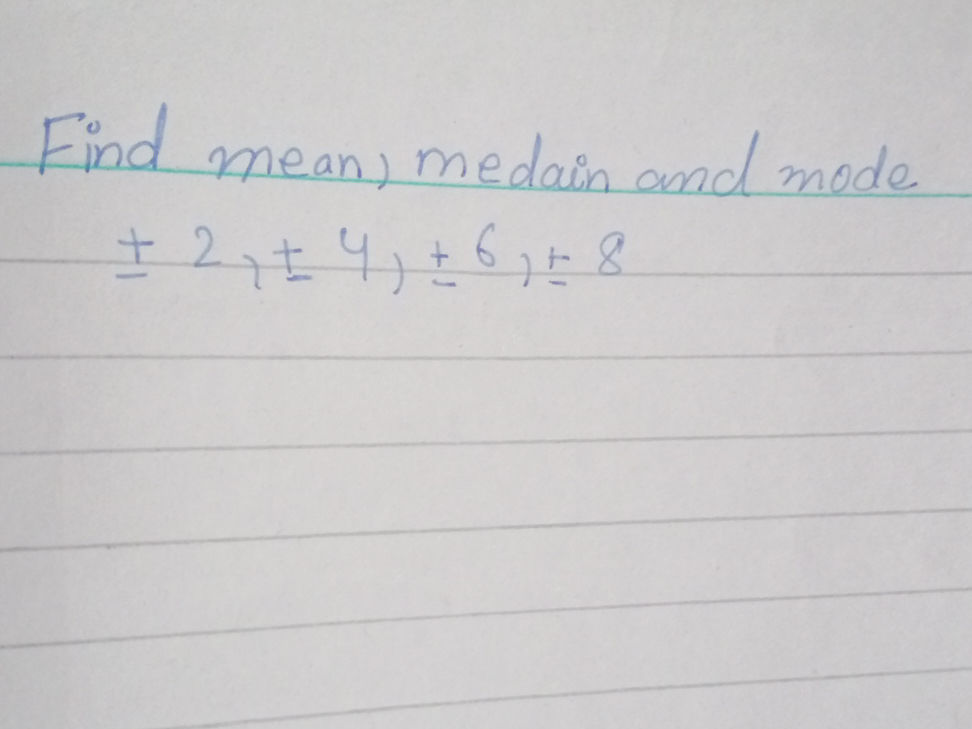 Find mean, medain and mode
± 2, ± 4, ± 6, ± 8